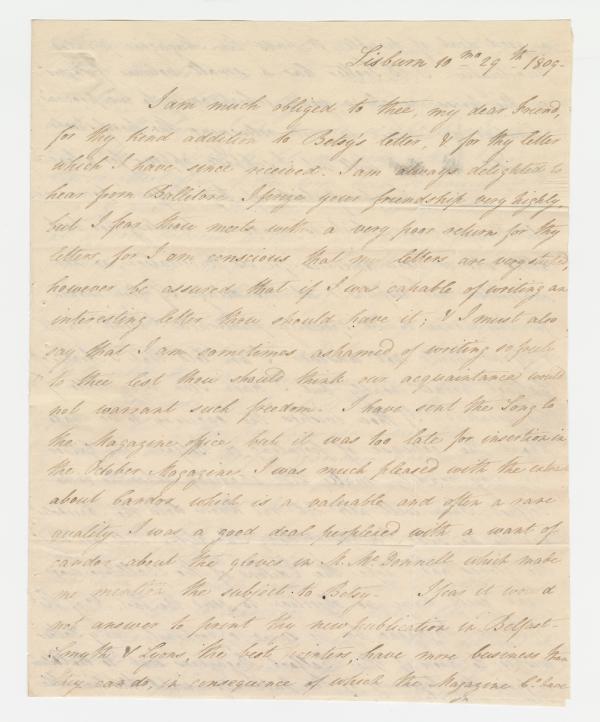 Lisburn 10 mo 29th 1809-
I am much obliged to thee, my dear friend,
for thy kind addition to Betsy's letter, & for thy letter
which I have since received. I am always delighted to
hear from Ballitore. I prize your friendship very highly,
but I fear thou meets with a very poor return for thy
letters, for I am conscious that my letters are very stupid,
however be assured that if I was capable of writing an
interesting letter thou should have it; & I must also
say that I am sometimes ashamed of writing so free
to thee lest thou should think our acquaintance would
not warrant such freedom. I have sent the Song to
the Magazine office, but it was too late for insertion in
the October Magazine. I was much pleased with the
about Candor which is a valuable and often a rare
quality. I was a good deal perplexed with a want of
candor about the gloves in M. McDonnell which made
me mention the subject to Betsy- I fear it would
not answer to print thy new publication in Belfast-
Smyth & Lyons, the best printers, have more business than
they can do, in consequence of which the Magazine Co. have